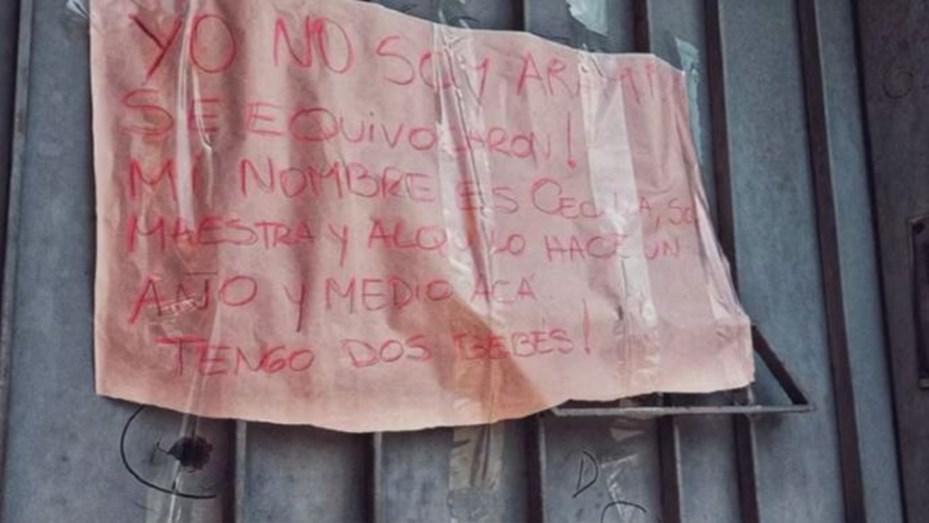 YO NO SOY
SE EQUIVOCARON!
MI NOMBRE ES CECILIA, SOY
MAESTRA Y ALQUILO HACE UN
AÑO Y MEDIO ACÁ
TENGO DOS BEBÉS!
D.